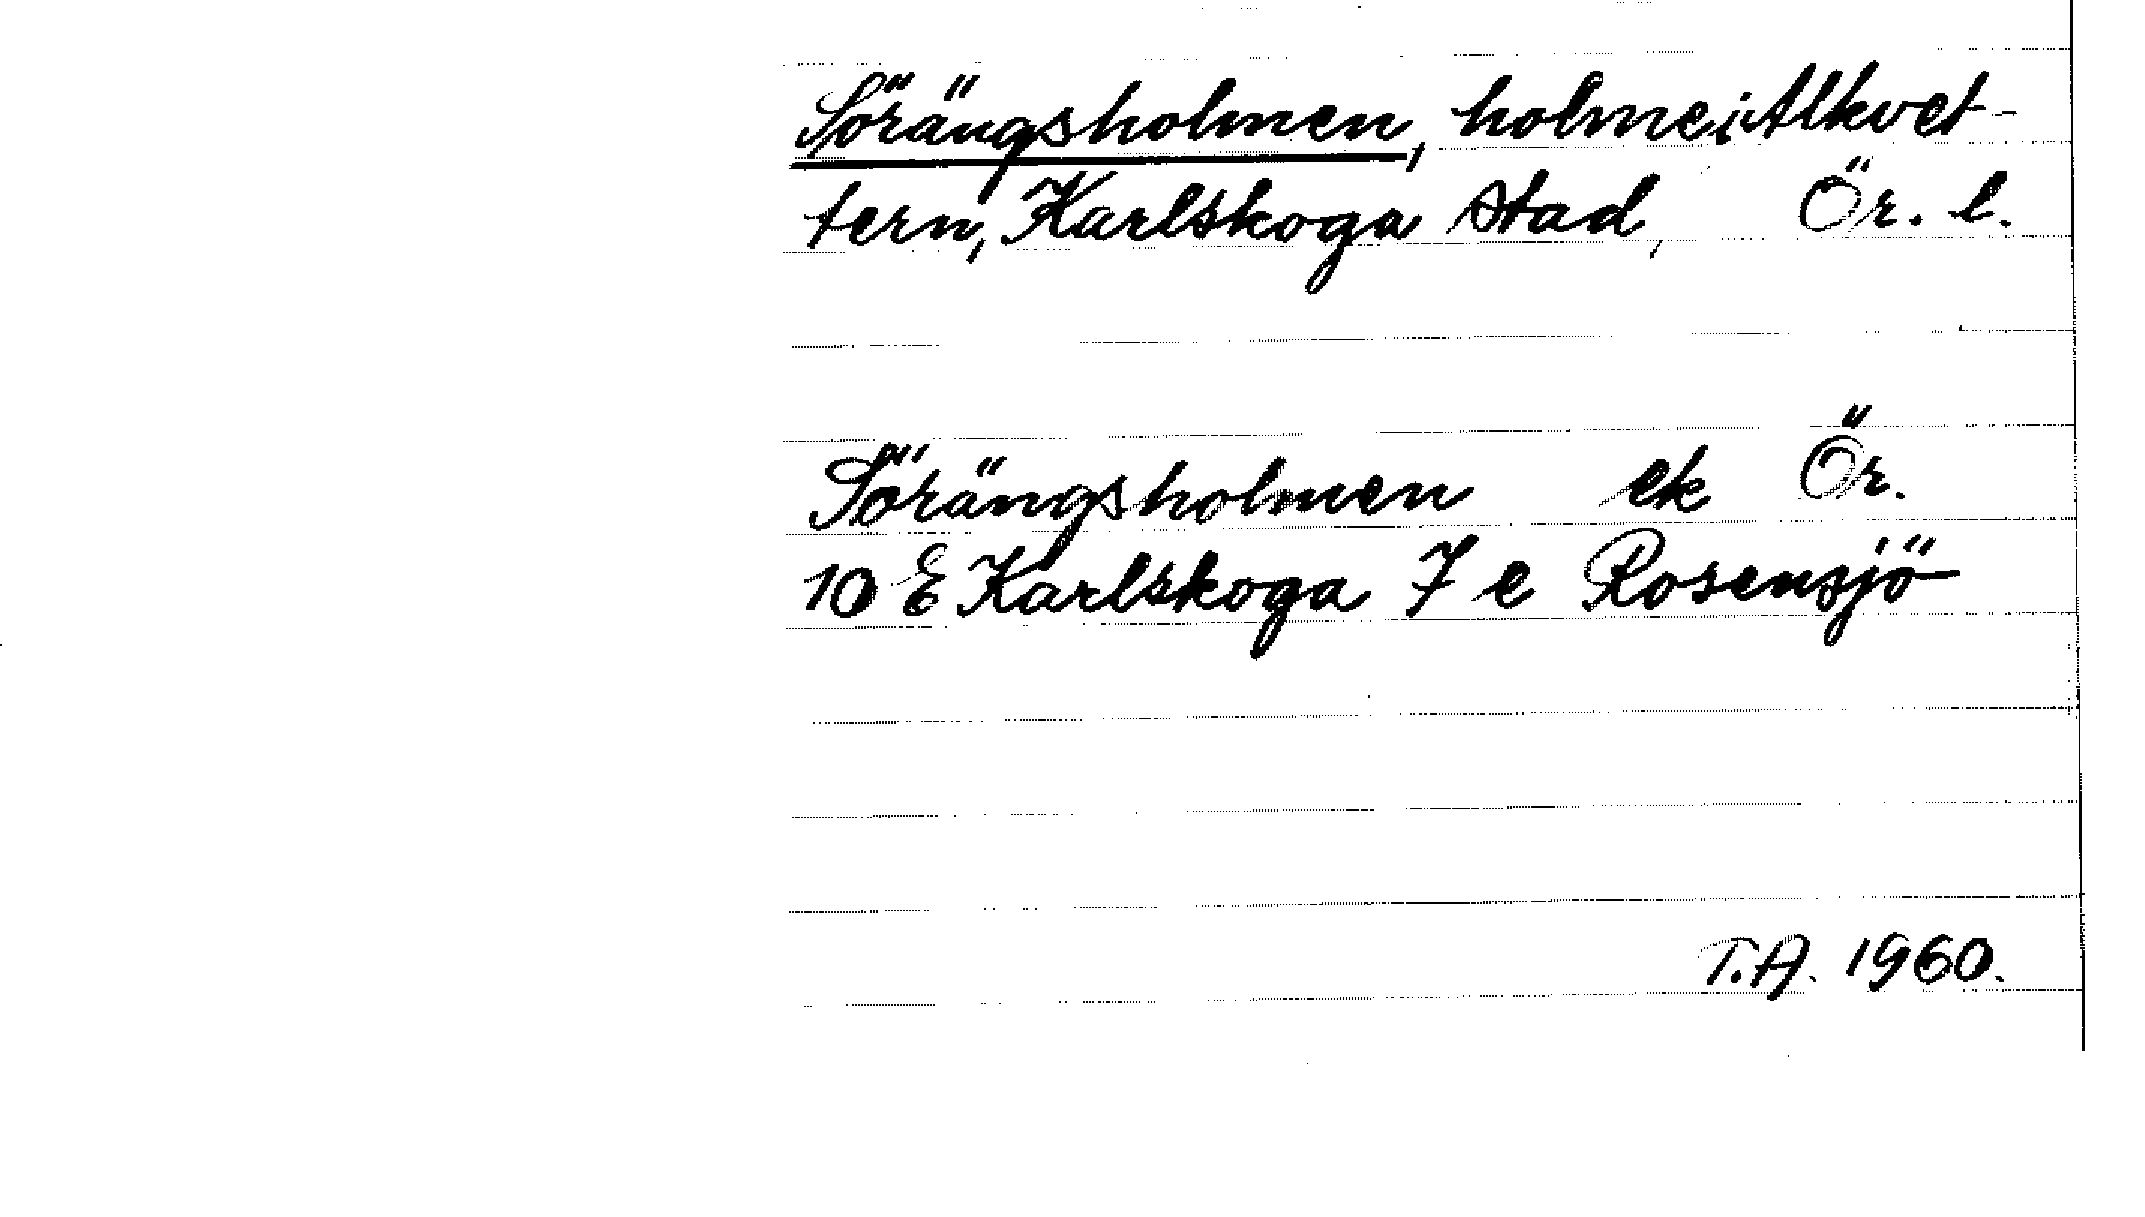 Sörängsholmen, holme i Alkvet-
tern, Karlskoga stad, Ör. l.
Sörängsholmen ek Ör.
10 E Karlskoga 7 e Rosensjö
T.A. 1960.